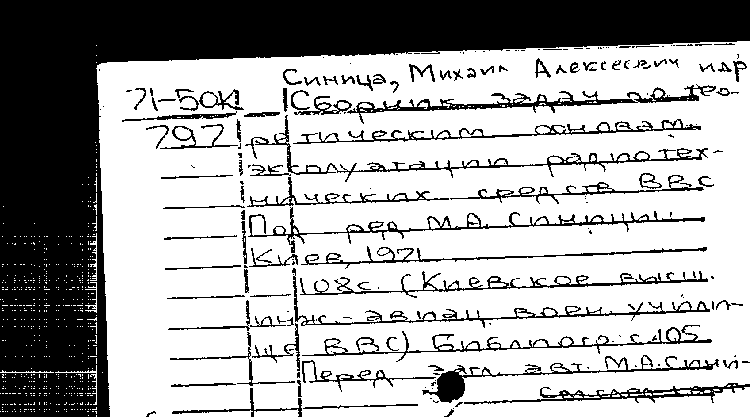 Синица, Михаил Алексеевич и др
71-50К Сборник задач по тео-
797 ретическим основам
эксплуатации радиотех-
нических средств ВВС
Под ред. М.А. Синицы
Киев, 1971
108с. (Киевское высш.
инж.-авиац. воен. учили-
ще ВВС). Библиогр. с.105
Перед загл. авт. М.А.Синий-
См.след.карт